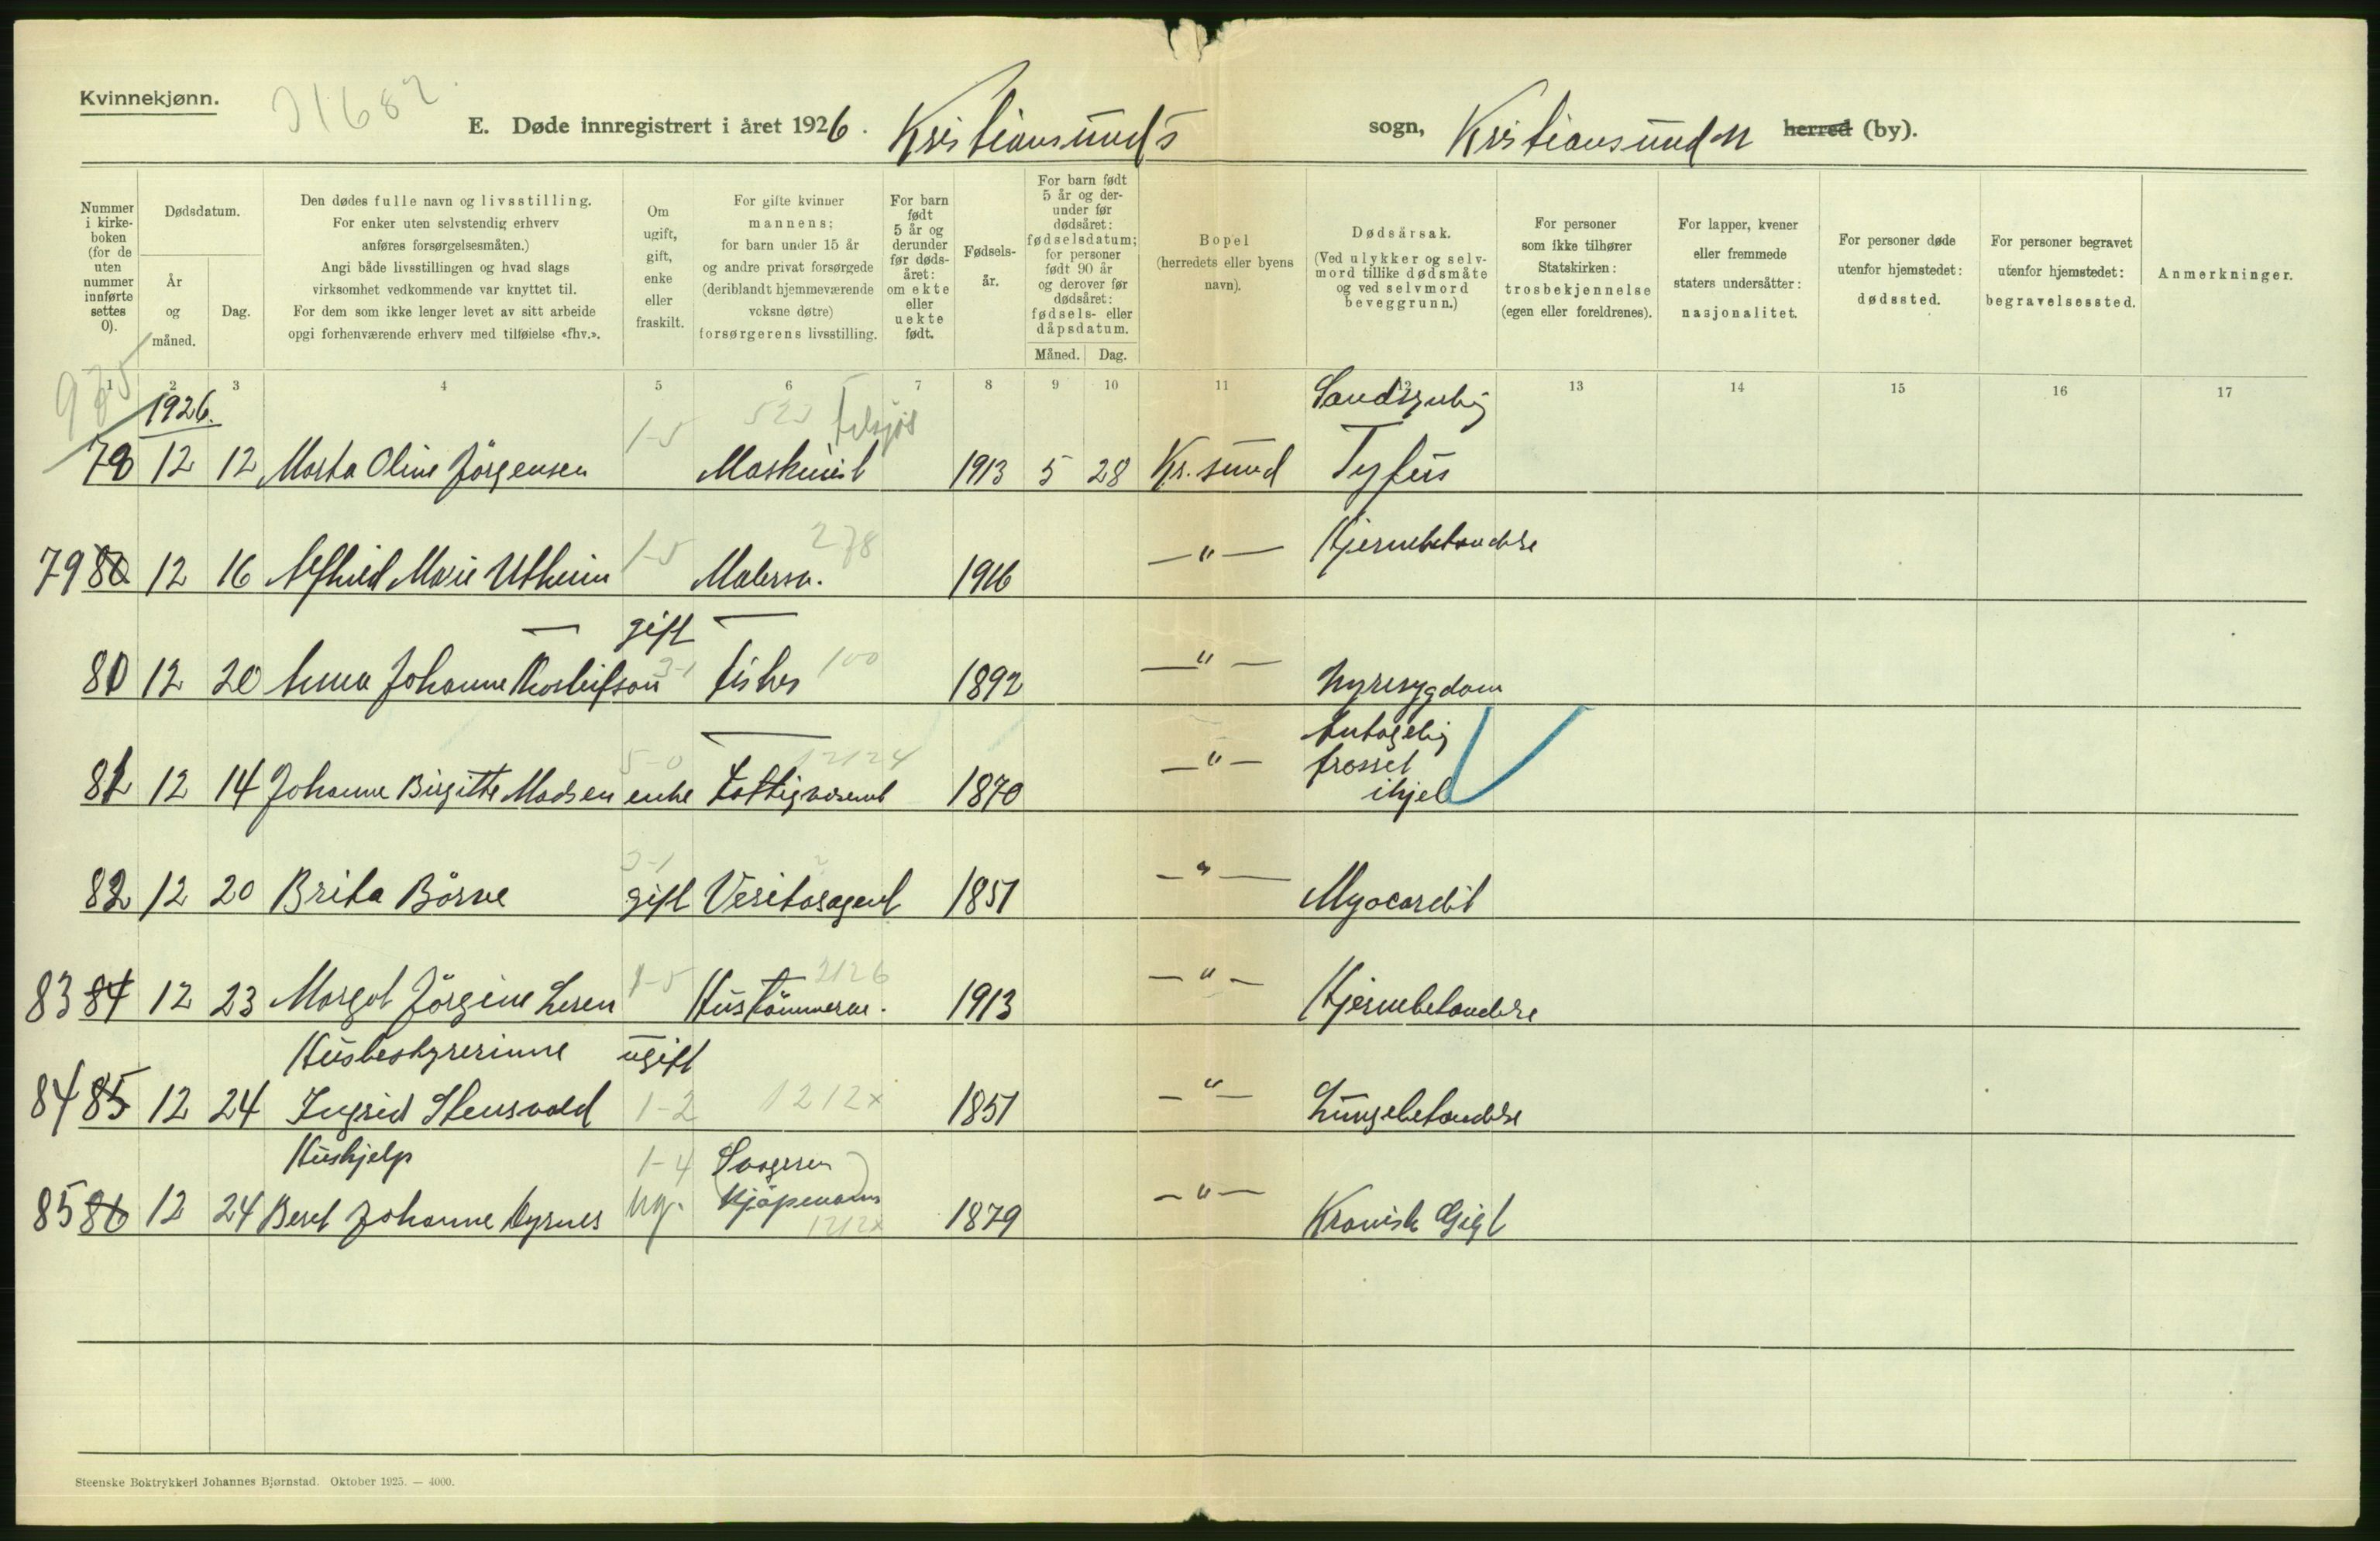 Kvinnekjønn.
E. Døde innregistrert i året 1926. Kristiansunds sogn, Kristiansund N herred (by).
Nummer i kirkeboken (for de uten nummer innførte settes 0).
Dødsdatum.
År og måned.
Dag.
Den dødes fulle navn og livsstilling.
For enker uten selvstendig erhverv anføres forsørgelsesmåten.)
Angi både livsstillingen og hvad slags virksomhet vedkommende var knyttet til.
For dem som ikke lenger levet av sitt arbeide opgi forhenværende erhverv med tilføielse «fhv.».
Om ugift, gift, enke eller fraskilt.
For gifte kvinner mannens; for barn under 15 år og andre privat forsørgede (deriblandt hjemmeværende voksne døtre) forsørgerens livsstilling.
For barn født 5 år og derunder før dødsåret: om ekte eller uekte født.
Fødselsår.
For barn født 5 år og derunder før dødsåret: fødselsdatum; for personer født 90 år og derover før dødsåret: fødsels- eller dåpsdatum.
Måned. Dag.
Bopel (herredets eller byens navn).
Dødsårsak. (Ved ulykker og selvmord tillike dødsmåte og ved selvmord beveggrunn.)
For personer som ikke tilhører Statskirken: trosbekjennelse (egen eller foreldrenes).
For lapper, kvener eller fremmede staters undersåtter: nasjonalitet.
For personer døde utenfor hjemstedet: dødssted.
For personer begravet utenfor hjemstedet: begravelsessted.
Anmerkninger.
1 2 3 4 5 6 7 8 9 10 11 12 13 14 15 16 17
1926.
Sandsynlig
78 12 12 Marta Oline Jörgensen 1-5 Maskinist 1913 5 28 Kr.sund Tyfus
278
79 80 12 16 Alfhild Marie Utheim 1-5 Malersv. 1916 —"— Hjernebetændelse
gift
80 12 20 Anna Johanne Thorleifson 3-1 fisker 100 1892 —"— Nyresygdom
5-0 12124 Antagelig
81 12 14 Johanne Birgitte Madsen enke Fattigvesenet 1870 —"— frosset
ihjel
3-1
82 12 20 Brita Börve gift Veritasagent 1851 —"— Myocardit
2126
83 84 12 23 Margot Jörgine Leren 1-5 Hustömmerm. 1913 —"— Hjernebetændelse
Husbestyrerinne ugift
84 85 12 24 Ingrid Stensvold 1-2 1212x 1851 —"— Lungebetændelse
Hushjelp 1-4 Svogeren
85 86 12 24 Beret Johanne Myrnes ug. Kjöpmann 1879 —"— Kronisk Gigt
1212x
Steenske Boktrykkeri Johannes Bjørnstad. Oktober 1925. — 4000.